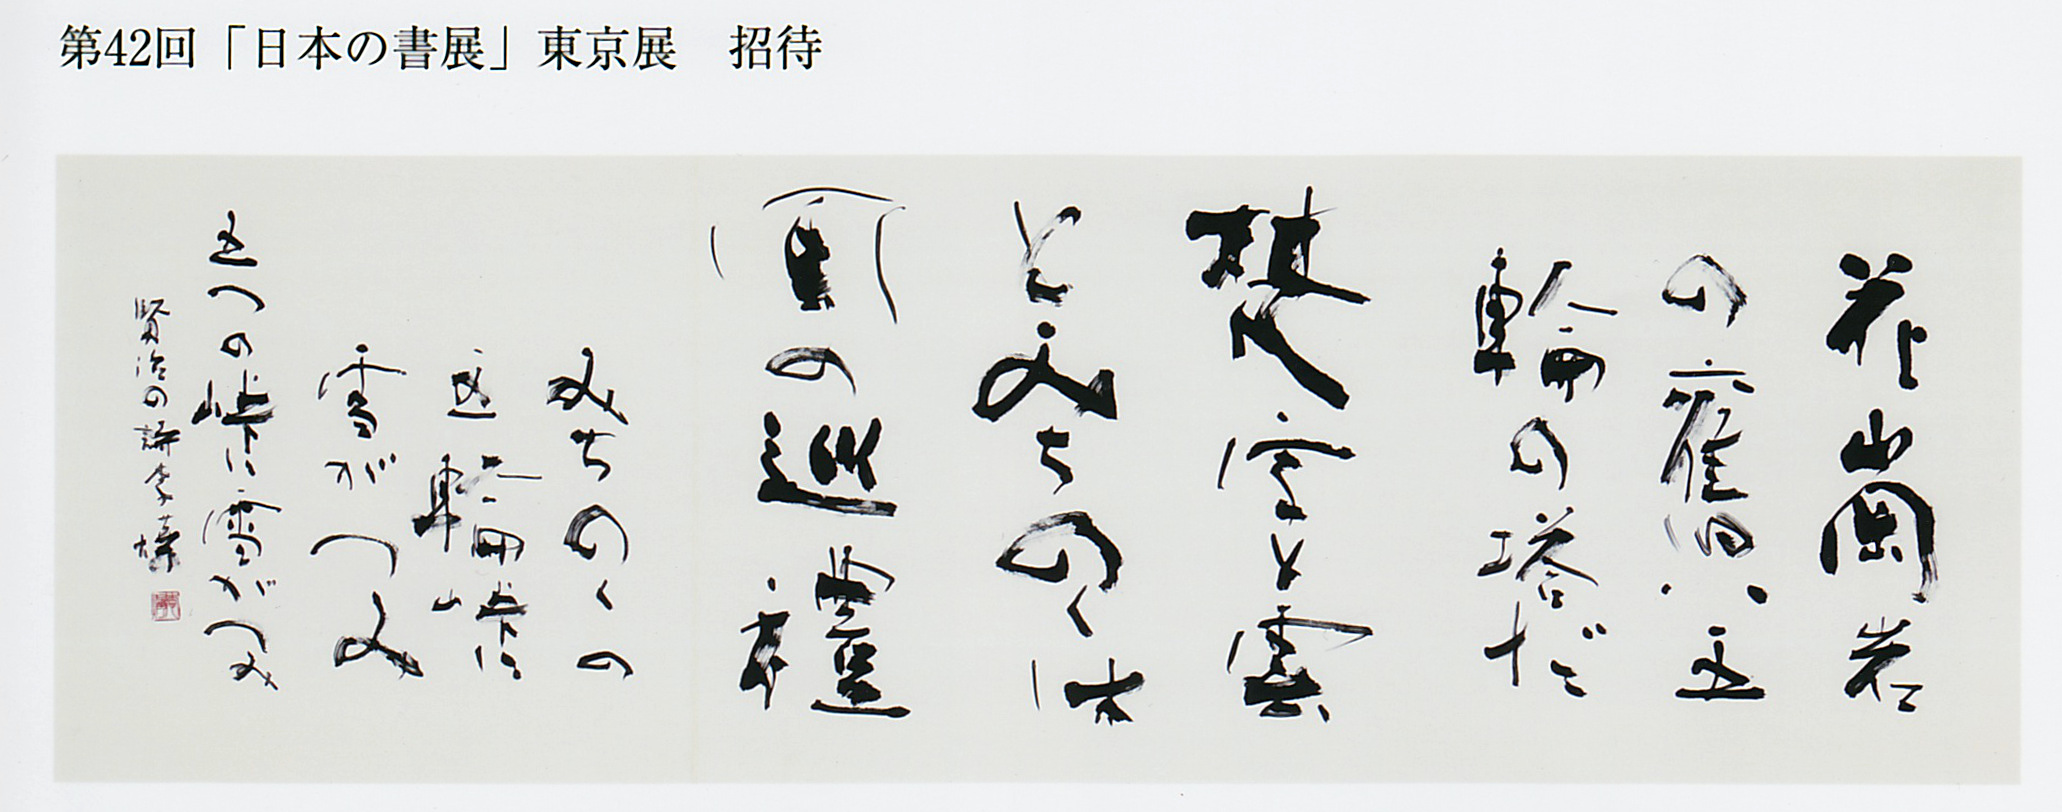 第42回「日本の書展」東京展　招待
花崗岩
の舊い五
輪の塔だ
梵字と雲
とみちのくは
風の巡禮
みちのくの
五輪峠に
雪がつみ
五つの峠に雪がつみ
賢治の詩